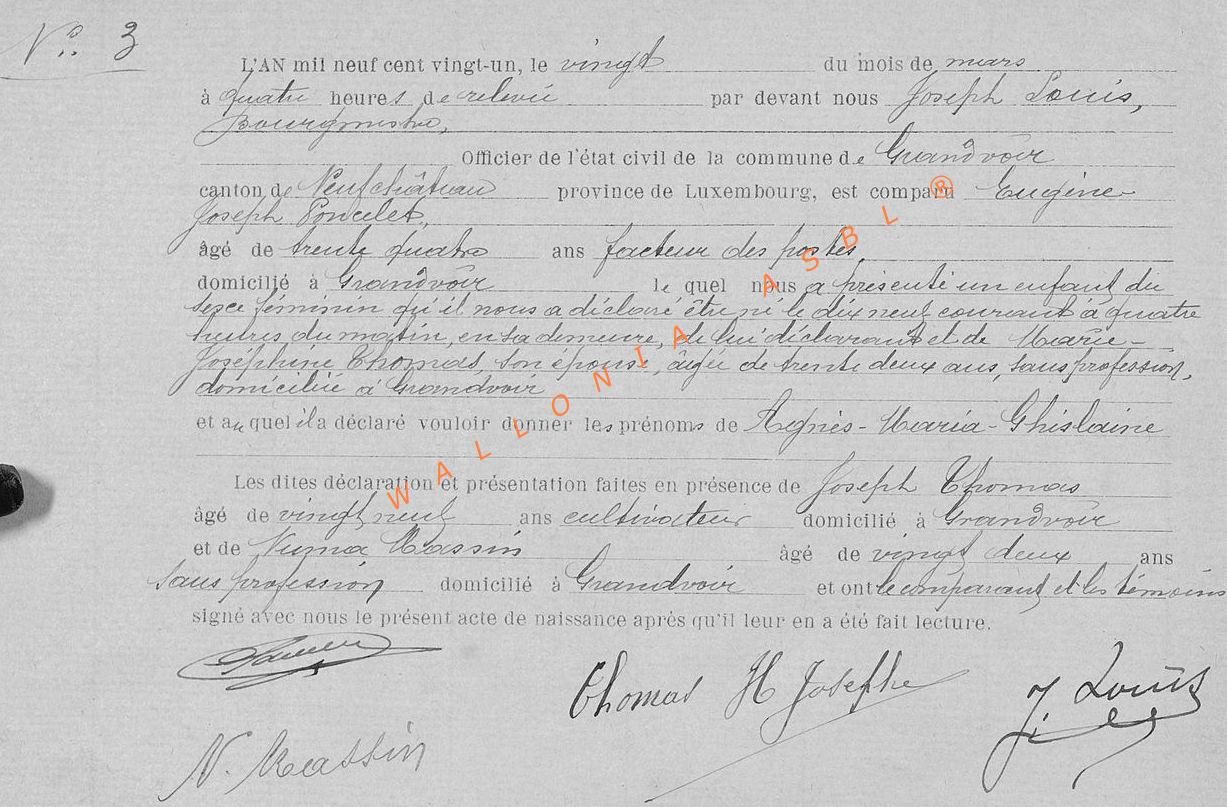 N° 3
L'AN mil neuf cent vingt-un, le vingt du mois de mars
à quatre heures de relevée par devant nous Joseph Louis,
Bourgmestre,
Officier de l'état civil de la commune de Grandvoir
canton de Neufchâteau province de Luxembourg, est comparu Eugène
Joseph Poncelet,
âgé de trente quatre ans facteur des postes,
domicilié à Grandvoir le quel nous a présenté un enfant du
sexe féminin qu'il nous a déclaré être né le dix neuf courant à quatre
heures du matin, en sa demeure, de lui déclarant et de Marie-
Joséphine Thomas, son épouse, âgée de trente deux ans, sans profession,
domiciliée à Grandvoir
et auquel il a déclaré vouloir donner les prénoms de Agnès-Maria-Ghislaine
Les dites déclaration et présentation faites en présence de Joseph Thomas
âgé de vingt neuf ans cultivateur domicilié à Grandvoir
et de Numa Massin âgé de vingt deux ans
sans profession domicilié à Grandvoir et ont le comparant et les témoins
signé avec nous le présent acte de naissance après qu'il leur en a été fait lecture.
Thomas H Josephe
J. Louis
N. Massin
WALLONIA ASBL ®